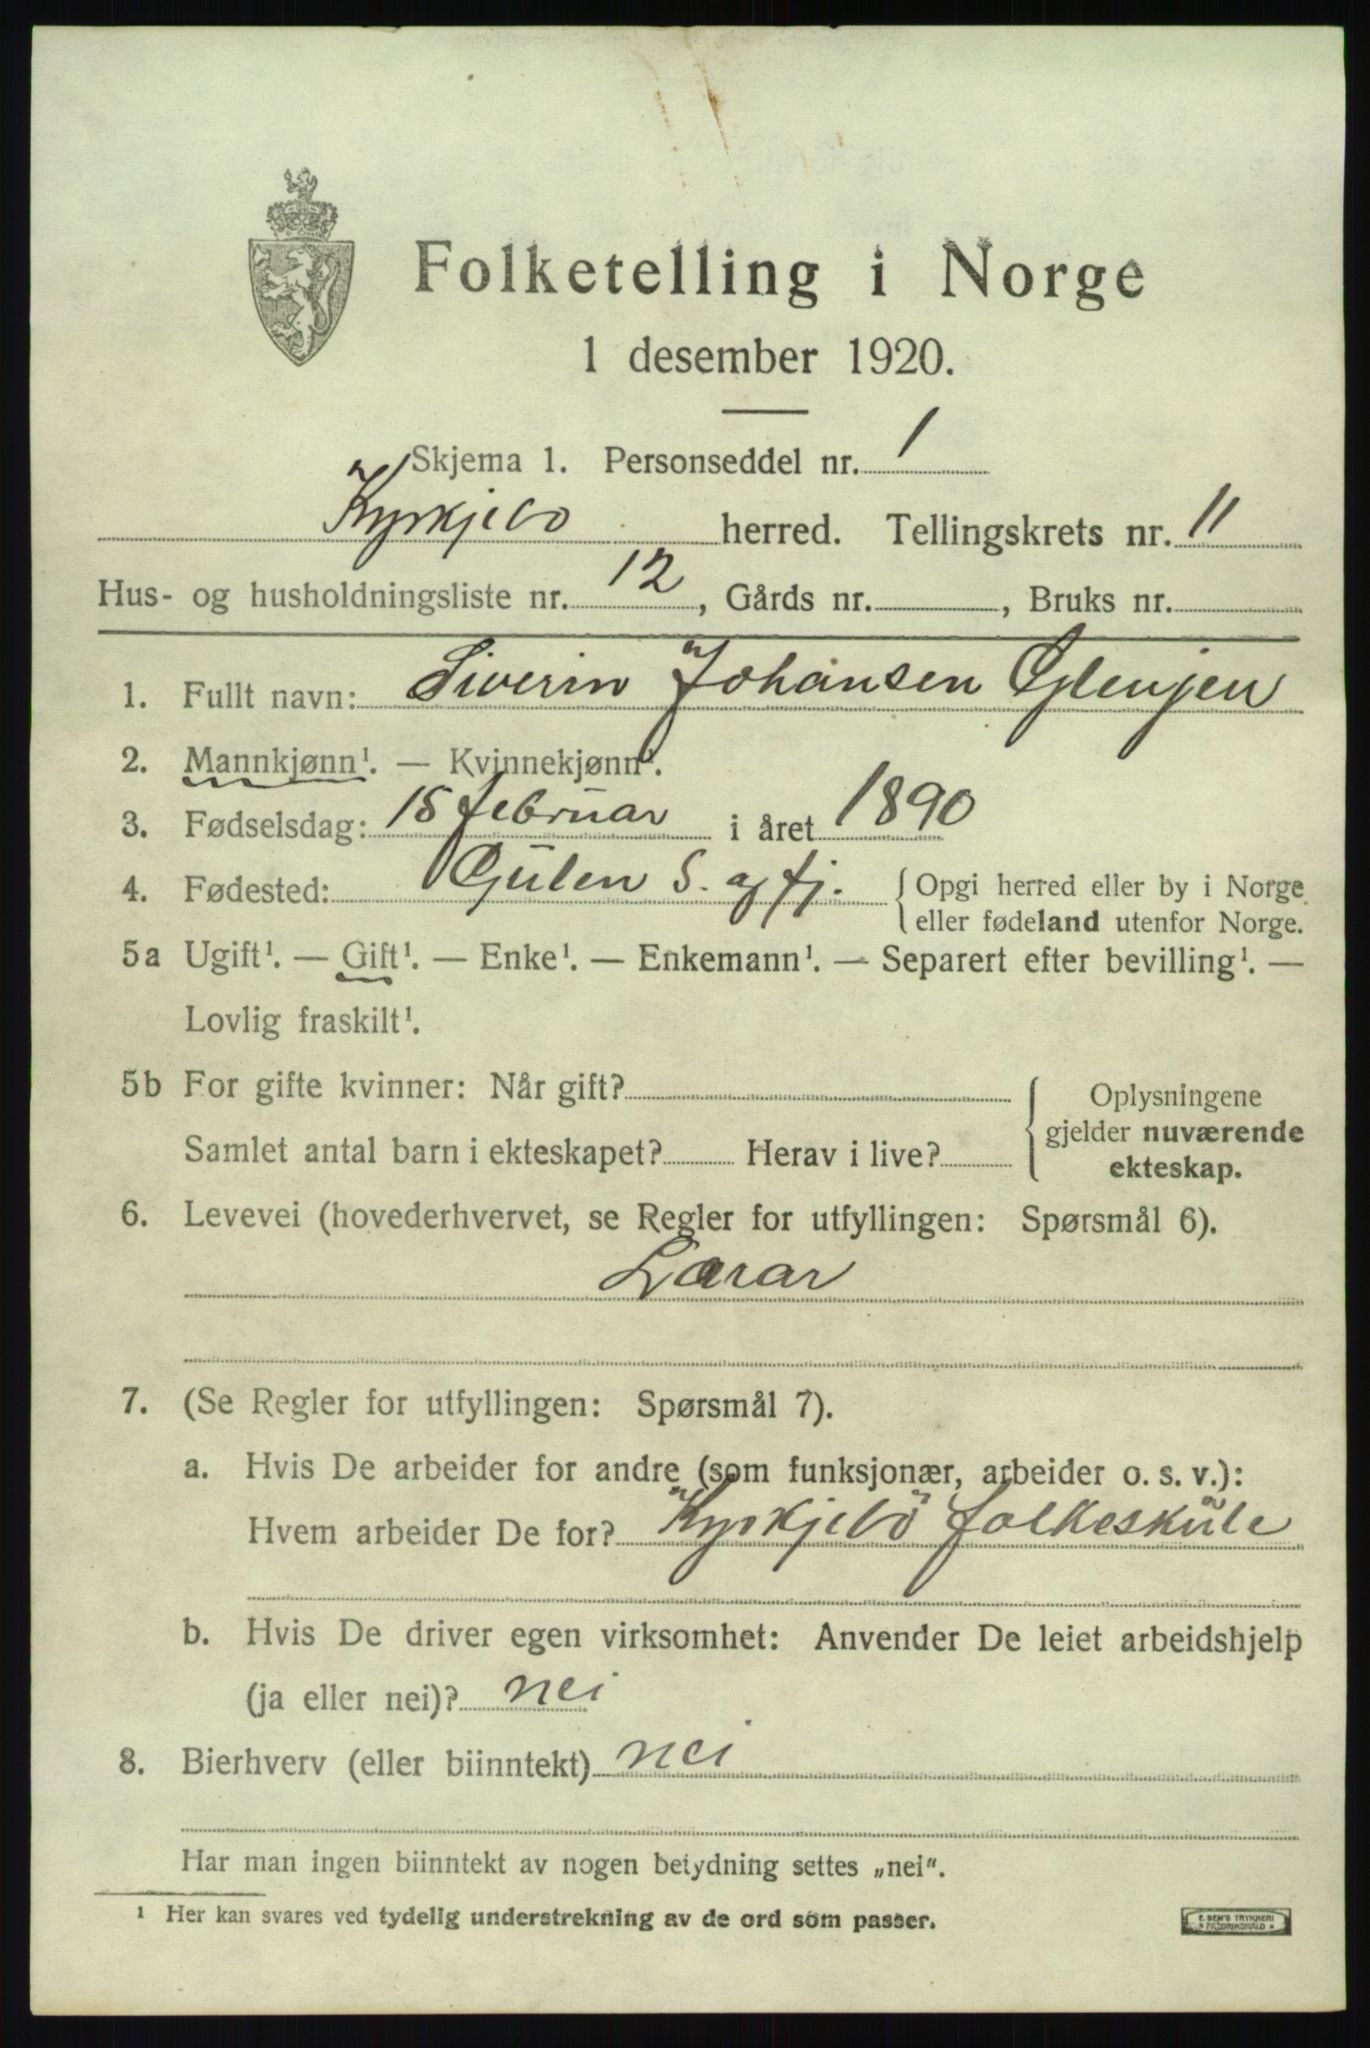 Folketelling i Norge
1 desember 1920.
Skjema 1. Personseddel nr. 1
Kyrkjebø herred. Tellingskrets nr. 11
Hus- og husholdningsliste nr. 12, Gårds nr. , Bruks nr.
1. Fullt navn: Siverin Johansen
2. Mannkjønn¹. — Kvinnekjønn¹.
3. Fødselsdag: 15 februar i året 1890
4. Fødested: Gulen S. og fj. { Opgi herred eller by i Norge
eller fødeland utenfor Norge.
5a Ugift¹. — Gift¹. — Enke¹. — Enkemann¹. — Separert efter bevilling¹. —
Lovlig fraskilt¹.
5b For gifte kvinner: Når gift? { Oplysningene
gjelder nuværende
Samlet antal barn i ekteskapet? Herav i live? ekteskap.
6. Levevei (hovederhvervet, se Regler for utfyllingen: Spørsmål 6).
Lærar
7. (Se Regler for utfyllingen: Spørsmål 7).
a. Hvis De arbeider for andre (som funksjonær, arbeider o. s. v.):
Hvem arbeider De for? Kyrkjebö folkeskule
b. Hvis De driver egen virksomhet: Anvender De leiet arbeidshjelp
(ja eller nei)? nei
8. Bierhverv (eller biinntekt) nei
Har man ingen biinntekt av nogen betydning settes „nei".
¹ Her kan svares ved tydelig understrekning av de ord som passer.
E. SEM'S TRYKKERI
FREDRIKSHALD